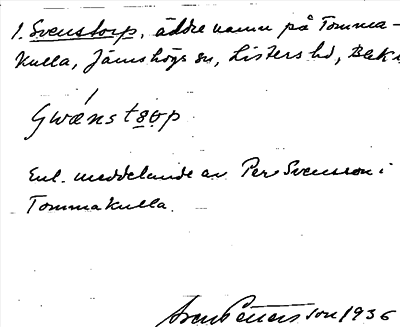 1. Svenstorp, äldre namn på Tomma-
kulla, Jämshögs sn, Listers hd, Blek
Enl. meddelande av Per Svensson i
Tommakulla.
Sven Pettersson 1936